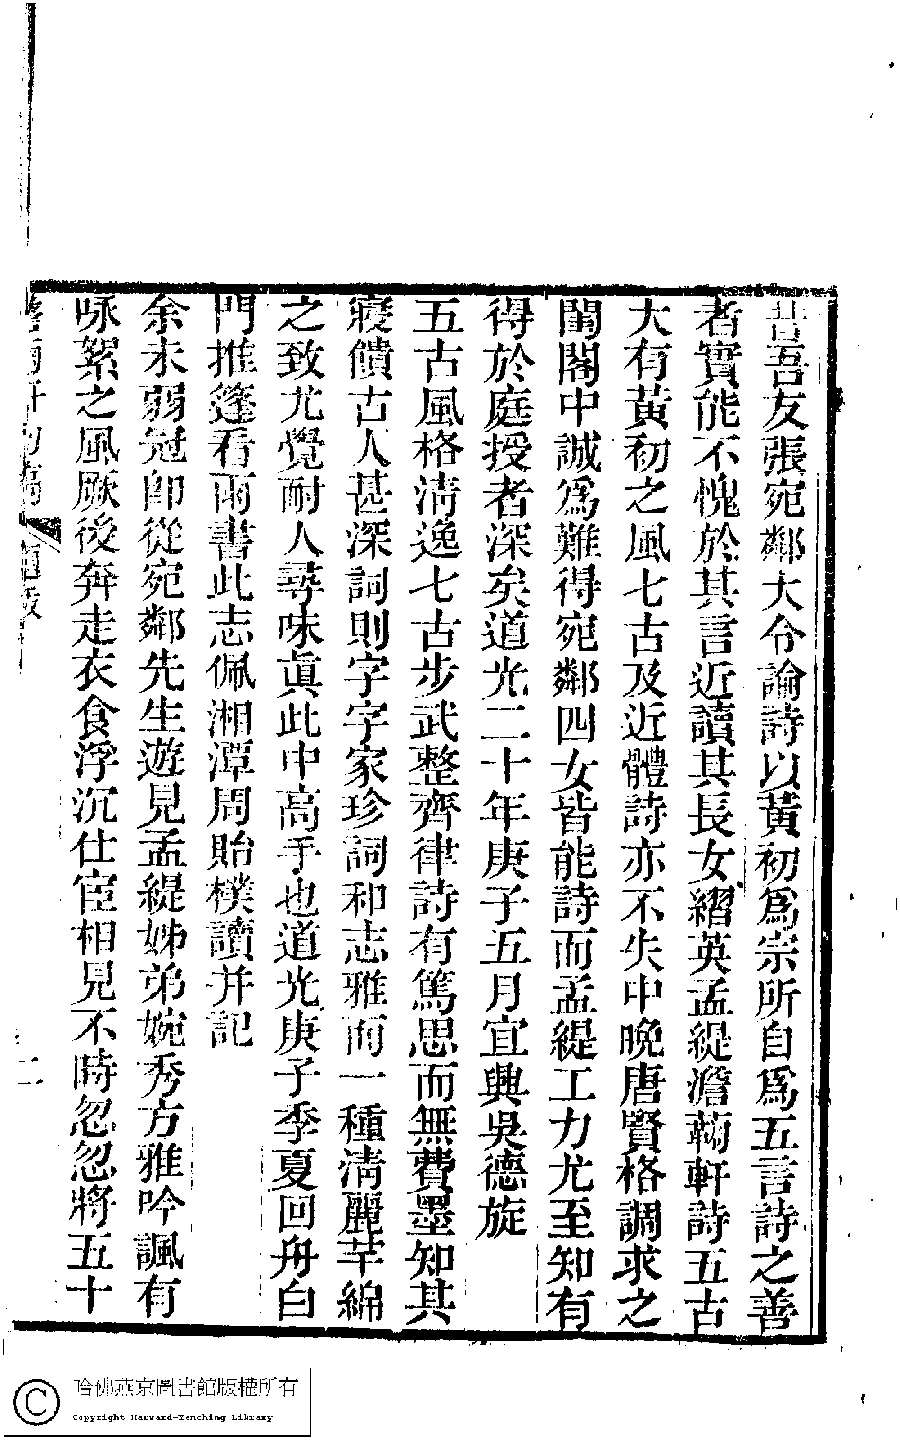 昔吾友張宛鄰大令論詩以黃初爲宗所自爲五言詩之善
者實能不愧於其言近讀其長女縎英孟緹澹蘜軒詩五古
大有黃初之風七古及近體詩亦不失中晚唐賢格調求之
閨閣中誠爲難得宛鄰四女皆能詩而孟緹工力尤至知有
得於庭授者深矣道光二十年庚子五月宜興吳德旋
五古風格清逸七古步武整齊律詩有篤思而無費墨知其
寢饋古人甚深詞則字字家珍詞和志雅而一種清麗芊綿
之致尤覺耐人尋味眞此中高手也道光庚子季夏回舟白
門推篷看雨書此志佩湘潭周貽樸讀并記
余未弱冠卽從宛鄰先生遊見孟緹姊弟婉秀方雅吟諷有
咏絮之風厥後奔走衣食浮沉仕宦相見不時忽忽將五十
題
二
哈佛燕京圖書館版權所有
Copyright Harvard-Yenching Library